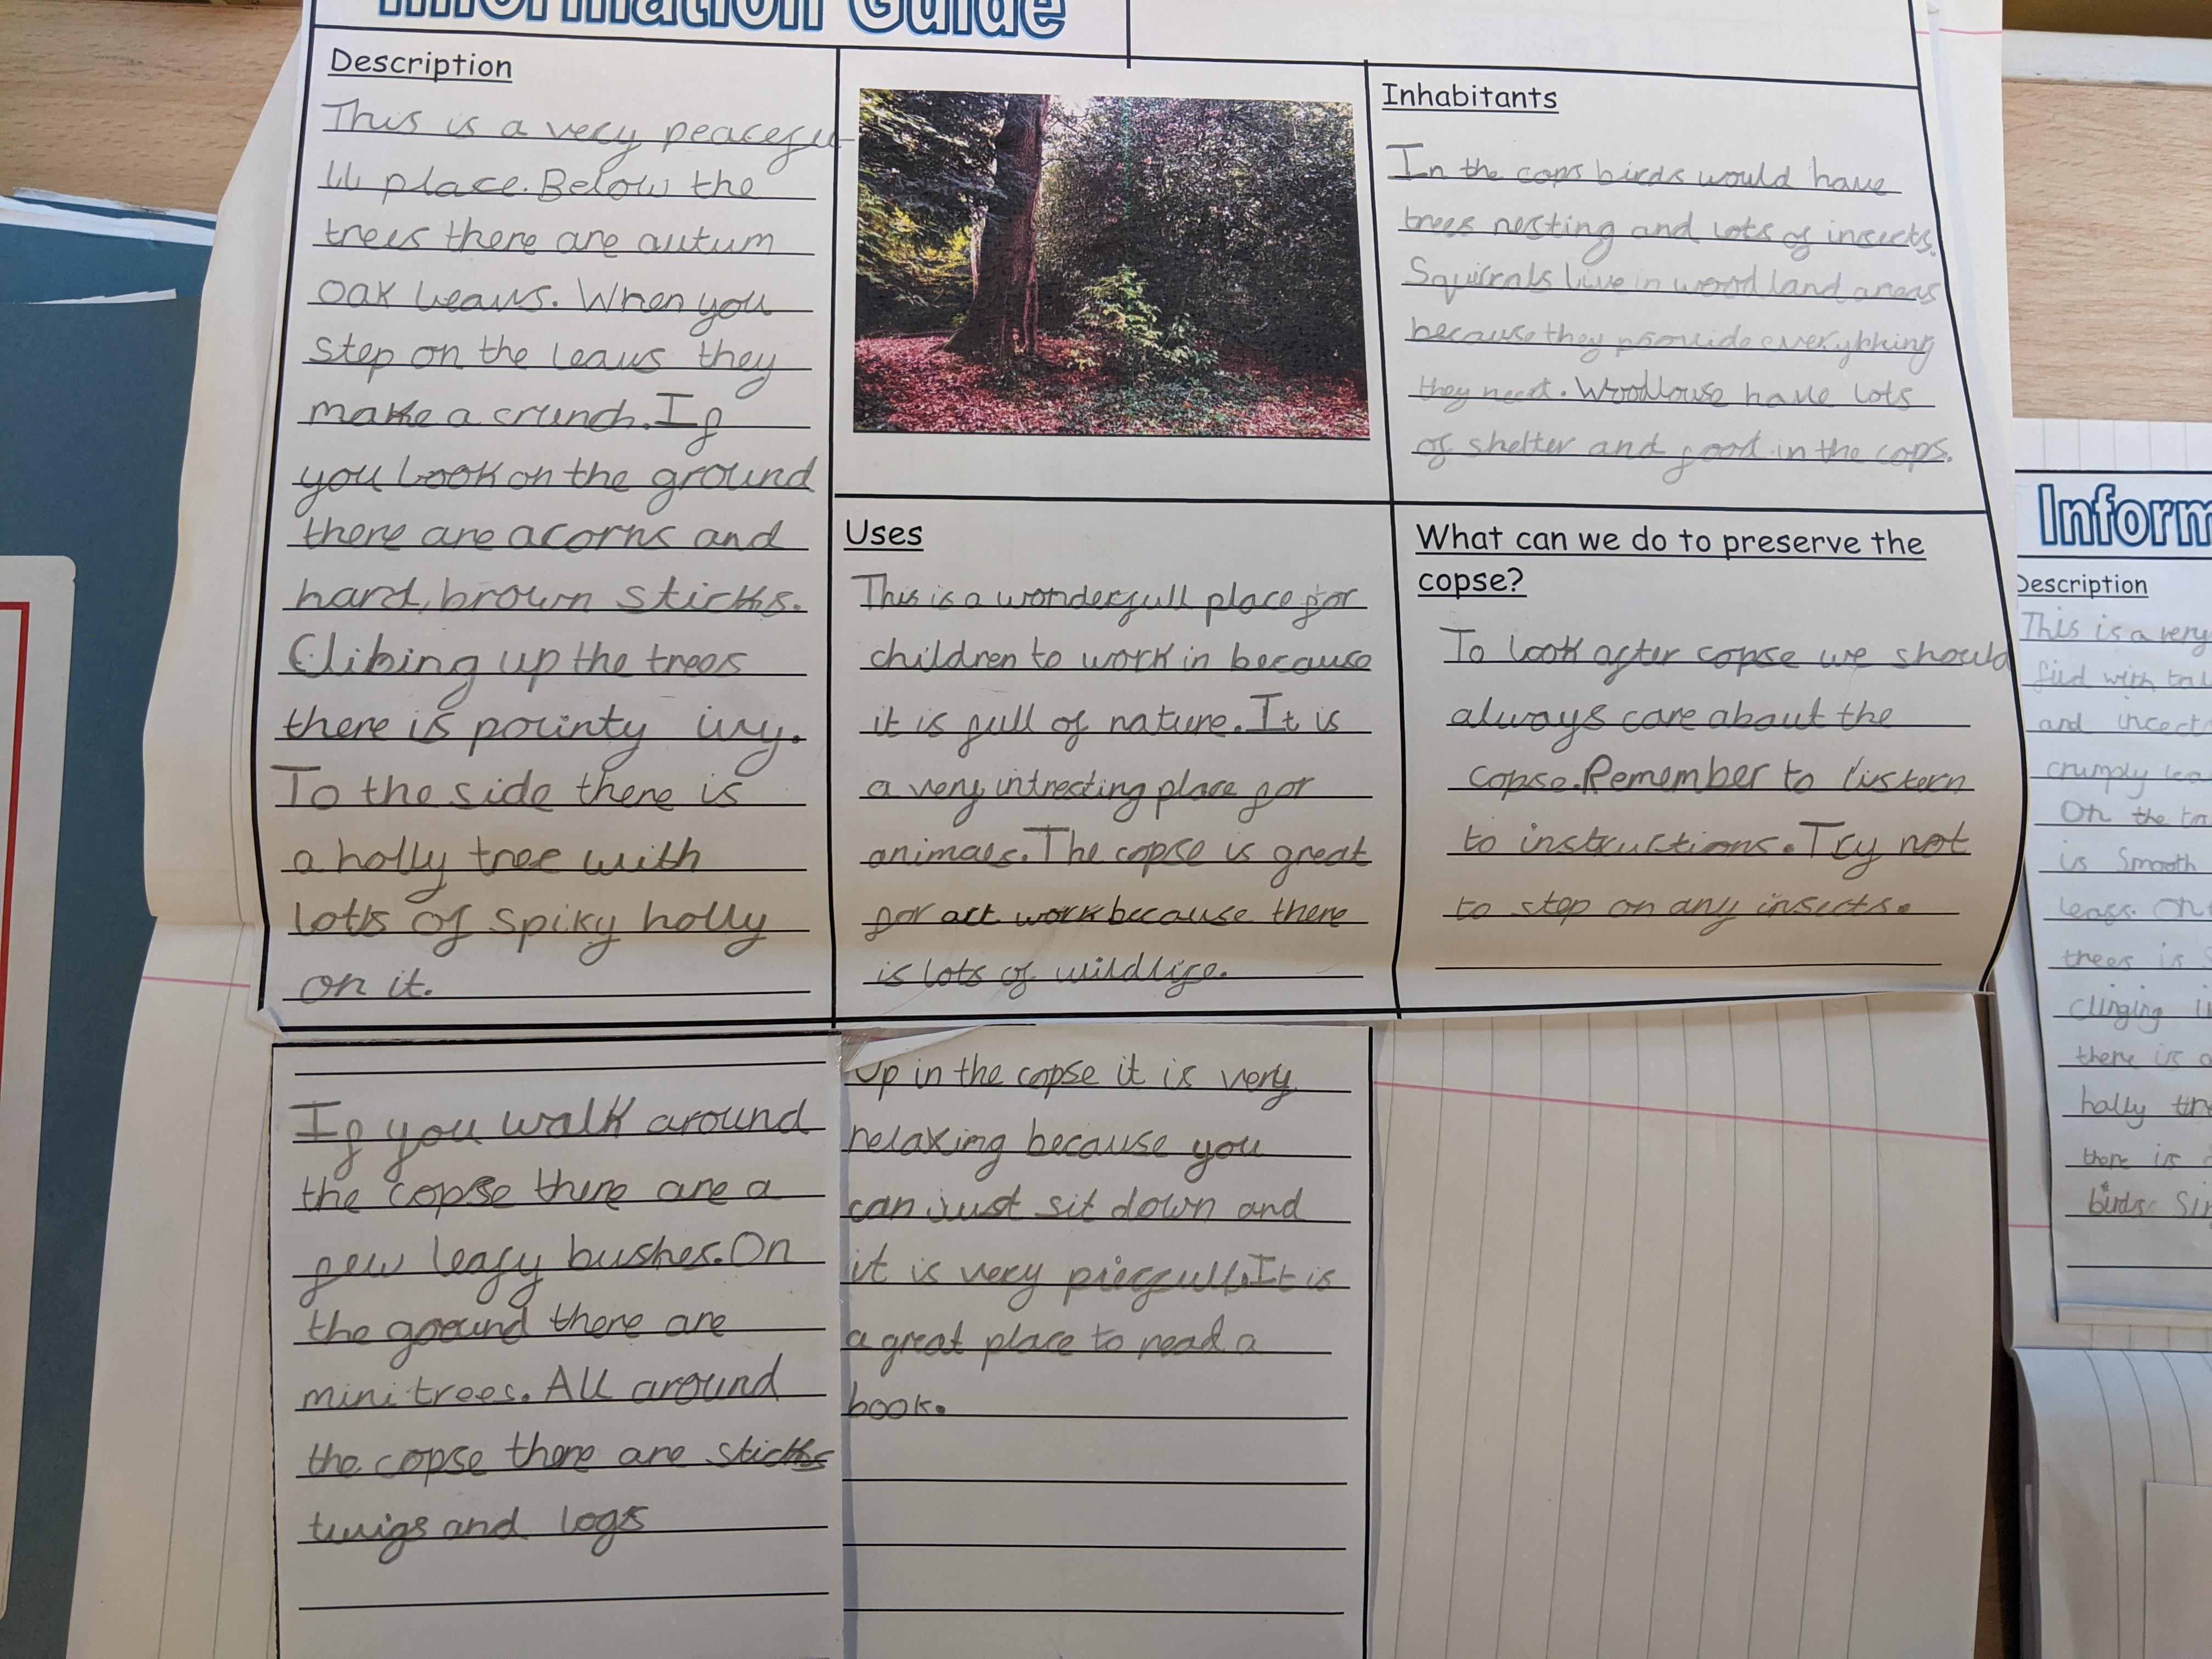 Information Guide
Description
This is a very peacefu
ll place. Below the
trees there are autum
oak leavs. When you
step on the leavs they
make a crunch. If
you look on the ground
there are acorns and
hard, brown sticks.
Clibing up the trees
there is pointy ivy.
To the side there is
a holly tree with
lots of spiky holly
on it.
If you walk around
the copse there are a
few leafy bushes. On
the ground there are
mini trees. All around
the copse there are sticks
twigs and logs
Uses
This is a wonderfull place for
children to work in because
it is full of nature. It is
a very intresting place for
animals. The copse is great
for art work because there
is lots of wildlife.
Up in the copse it is very
relaxing because you
can just sit down and
it is very piecfull. It is
a great place to read a
book.
Inhabitants
In the cops birds would have
trees nesting and lots of insects.
Squirrals live in wood land areas
because they provide everything
they need. Woodlouse have lots
of shelter and food in the cops.
What can we do to preserve the
copse?
To look after copse we should
always care about the
copse. Remember to listern
to instructions. Try not
to step on any insects.
Inform
Description
This is a very
with
and
crumply
On the
is smooth
leafs.
trees is
clinging
there is
holly
there is
birds